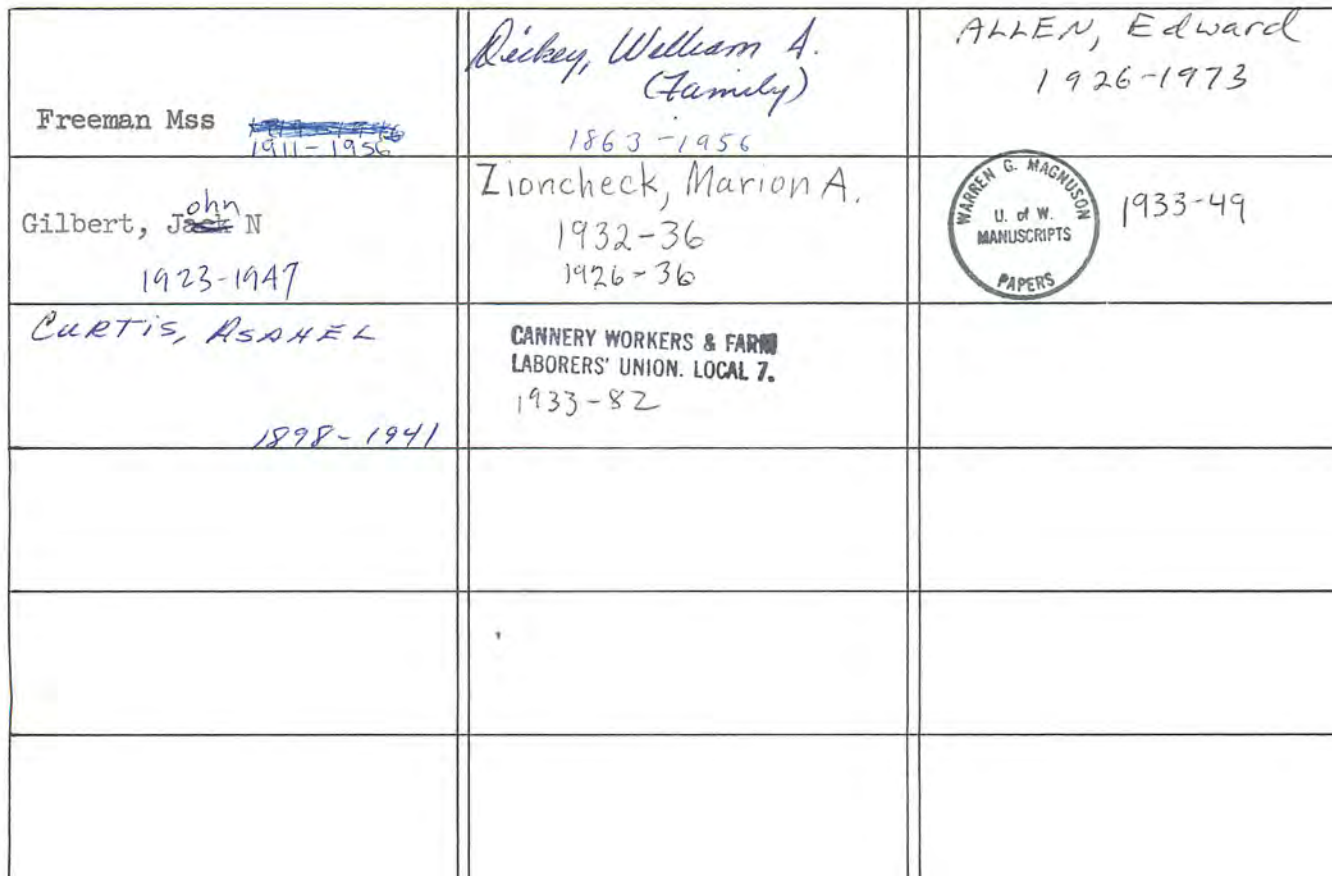 Freeman Mss
1911-1956
Dickey, William A.
(Family)
1863-1956
ALLEN, Edward
1926-1973
Gilbert, John N
1923-1947
Zioncheck, Marion A.
1932-36
1926-36
WARREN G. MAGNUSON
U. of W.
MANUSCRIPTS
PAPERS
1933-49
CURTIS, ASAHEL
1898-1941
CANNERY WORKERS & FARM
LABORERS' UNION. LOCAL 7.
1933-82